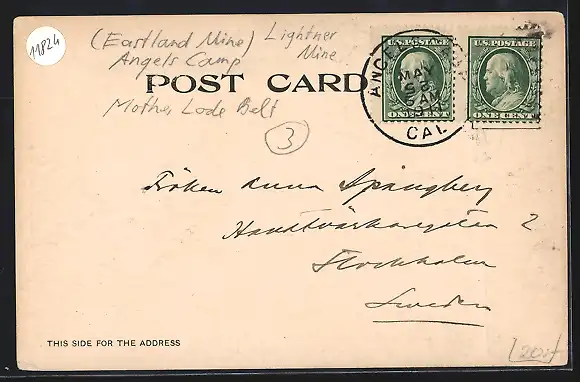 11824
(Eastland Mine) Lightner
Angels Camp Mine
POST CARD
Mother Lode Belt
3
U.S.POSTAGE
ONE CENT
U.S.POSTAGE
ONE CENT
MAY
CAL
Fröken Anna Spångberg
Hantverkaregatan 2
Stockholm
Sweden
THIS SIDE FOR THE ADDRESS